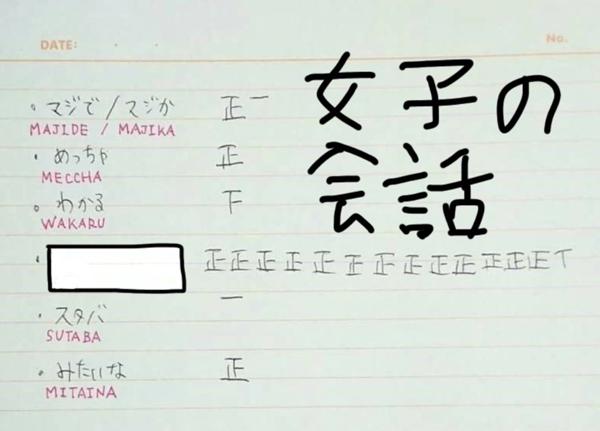 DATE: ・ ・
No.
女子の
会話
・マジで/マジか 正一
MAJIDE / MAJIKA
・めっちゃ 正
MECCHA
・わかる 下
WAKARU
・ 正正正正正正正正正正正正正丅
・スタバ 一
SUTABA
・みたいな 正
MITAINA